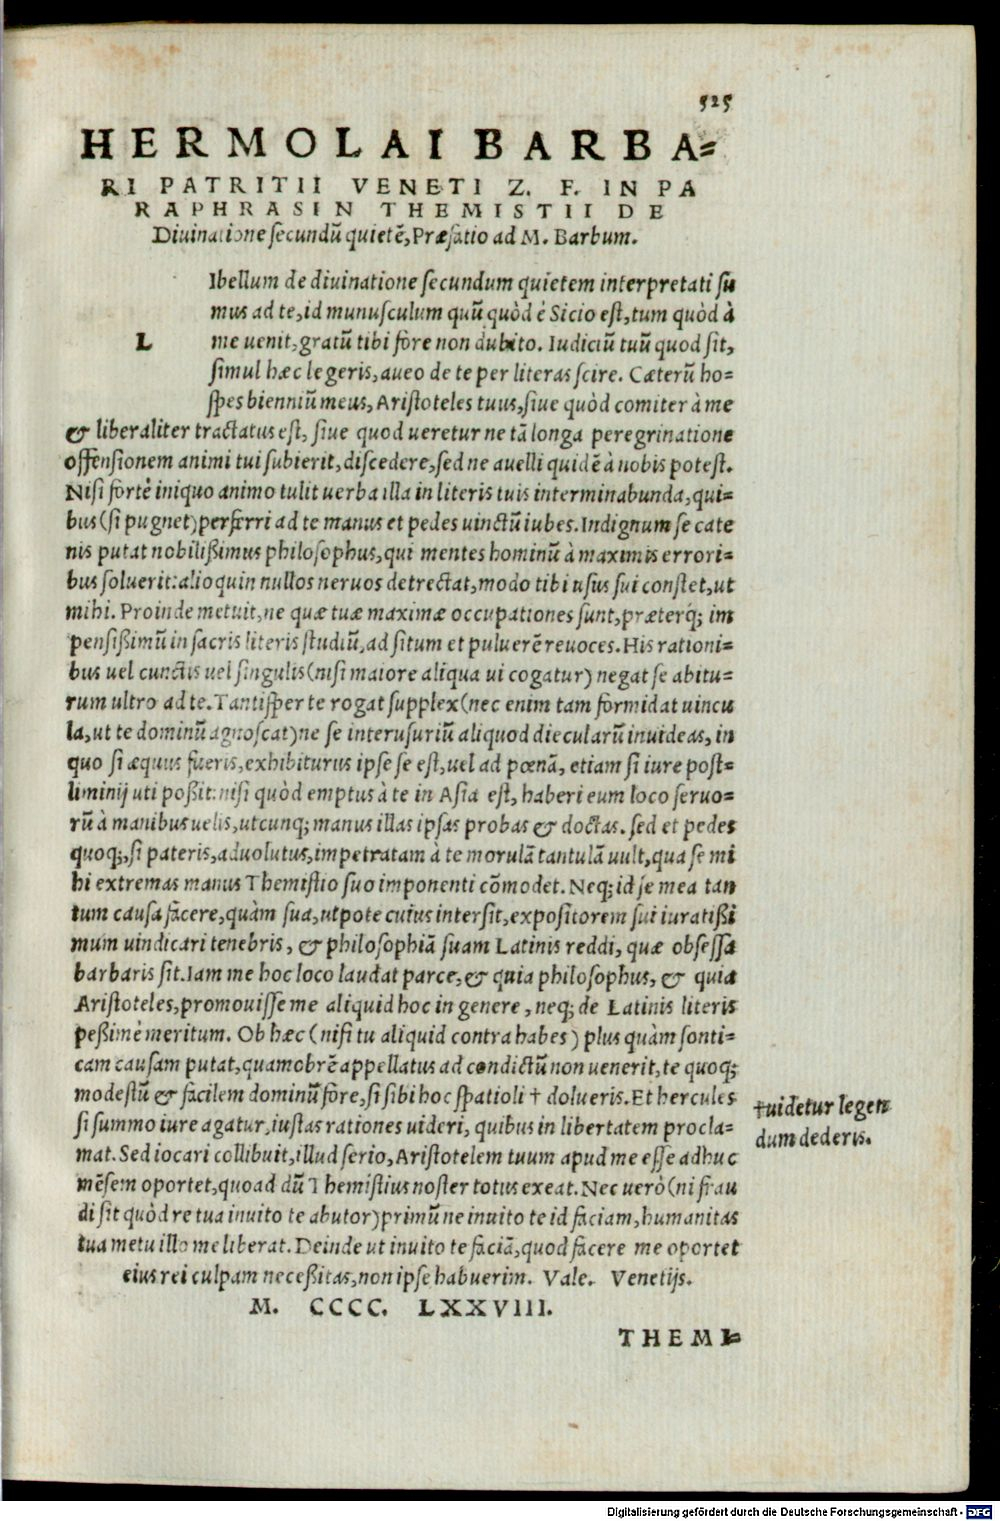 525
HERMOLAI BARBA=
RI PATRITII VENETI Z. F. IN PA
RAPHRASIN THEMISTII DE
Diuinatione ſecundũ quietẽ, Præfatio ad M. Barbum.
LIbellum de diuinatione ſecundum quietem interpretati ſu
mus ad te, id munuſculum quũ quòd è Sicio eſt, tum quòd à
me uenit, gratũ tibi fore non dubito. Iudiciũ tuũ quod ſit,
ſimul hæc legeris, aueo de te per literas ſcire. Cæterũ ho=
ſpes bienniũ meus, Ariſtoteles tuus, ſiue quòd comiter à me
& liberaliter tractatus eſt, ſiue quod ueretur ne tã longa peregrinatione
offenſionem animi tui ſubierit, diſcedere, ſed ne auelli quidẽ à nobis poteſt.
Niſi fortè iniquo animo tulit uerba illa in literis tuis interminabunda, qui=
bus (ſi pugnet) perferri ad te manus et pedes uinctũ iubes. Indignum ſe cate
nis putat nobilißimus philoſophus, qui mentes hominũ à maximis errori=
bus ſoluerit: alioquin nullos neruos detrectat, modo tibi uſus ſui conſtet, ut
mihi. Proinde metuit, ne quæ tuæ maximæ occupationes ſunt, præterq; im
penſißimũ in ſacris literis ſtudiũ, ad ſitum et puluerẽ reuoces. His rationi=
bus uel cunctis uel ſingulis (niſi maiore aliqua ui cogatur) negat ſe abitu=
rum ultro ad te. Tantiſper te rogat ſupplex (nec enim tam formidat uincu
la, ut te dominũ agnoſcat) ne ſe interuſuriũ aliquod diecularũ inuideas, in
quo ſi æquus fueris, exhibiturus ipſe ſe eſt, uel ad pœnã, etiam ſi iure poſt=
liminij uti poßit: niſi quòd emptus à te in Aſia eſt, haberi eum loco ſeruo=
rũ à manibus uelis, utcunq; manus illas ipſas probas & doctas. ſed et pedes
quoq;, ſi pateris, aduolutus, impetratam à te morulã tantulã uult, qua ſe mi
hi extremas manus Themiſtio ſuo imponenti cõmodet. Neq; id ſe mea tan
tum cauſa facere, quàm ſua, utpote cuius interſit, expoſitorem ſui iuratißi
mum uindicari tenebris, & philoſophiã ſuam Latinis reddi, quæ obſeſſa
barbaris ſit. Iam me hoc loco laudat parce, & quia philoſophus, & quia
Ariſtoteles, promouiſſe me aliquid hoc in genere, neq; de Latinis literis
peßimè meritum. Ob hæc (niſi tu aliquid contra habes) plus quàm ſonti=
cam cauſam putat, quamobrẽ appellatus ad condictũ non uenerit, te quoq;
modeſtũ & facilem dominũ fore, ſi ſibi hoc ſpatioli † dolueris. Et hercules
ſi ſummo iure agatur, iuſtas rationes uideri, quibus in libertatem procla=
mat. Sed iocari collibuit, illud ſerio, Ariſtotelem tuum apud me eſſe adhuc
mẽſem oportet, quoad dũ Themiſtius noſter totus exeat. Nec uerò (ni frau
di ſit quòd re tua inuito te abutor) primũ ne inuito te id faciam, humanitas
tua metu illo me liberat. Deinde ut inuito te faciã, quod facere me oportet
eius rei culpam neceßitas, non ipſe habuerim. Vale. Venetijs.
M. CCCC. LXXVIII.
THEMI=
†uidetur legen
dum dederis.
Digitalisierung gefördert durch die Deutsche Forschungsgemeinschaft - DFG